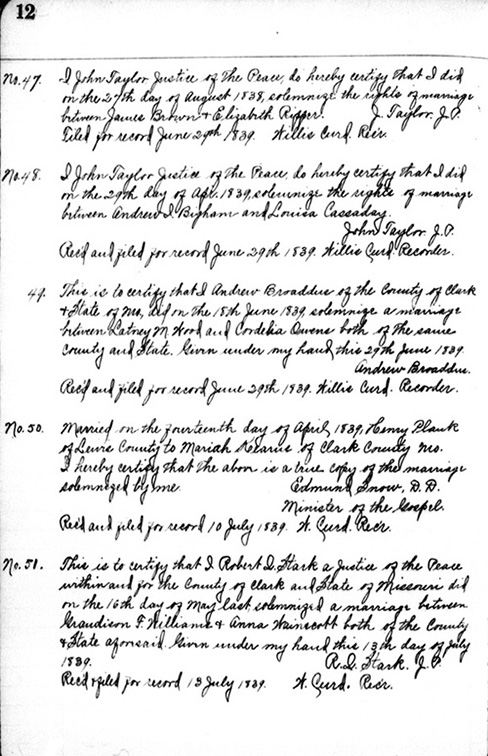 12
No. 47. I John Taylor Justice of the Peace, do hereby certify that I did
on the 27th day of August 1838, solemnize the rights of marriage
between James Brown & Elizabeth Ripper. J. Taylor. J.P.
Filed for record June 29th 1839. Willis Curd. Recr.
No. 48. I John Taylor Justice of the Peace, do hereby certify that I did
on the 29th day of Apr. 1839, solemnize the rights of marriage
between Andrew I. Bigham and Louisa Cassaday.
John Taylor. J.P.
Rec'd and filed for record June 29th 1839. Willis Curd. Recorder.
49. This is to certify that I Andrew Broaddus of the County of Clark
& State of Mo, did on the 18th June 1839, solemnize a marriage
between Latney M. Wood and Cordelia Owens both of the same
County and State. Given under my hand this 29th June 1839.
Andrew Broaddus.
Rec'd and filed for record June 29th 1839. Willis Curd. Recorder.
No. 50. Married on the fourteenth day of April, 1839, Henry Plank
of Lewis County to Mariah of Clark County Mo.
I hereby certify that the above is a true copy of the marriage
solemnized by me. Edmund Snow, D.D.
Minister of the Gospel.
Rec'd and filed for record 10 July 1839. W. Curd. Rec'r.
No. 51. This is to certify that I Robert D. Stark a Justice of the Peace
within and for the County of Clark and State of Missouri did
on the 16th day of May last solemnized a marriage between
Grandison F. Williams & Anna Wainscott both of the County
& State aforesaid. Given under my hand this 13th day of July
1839. R. D. Stark, J.P.
Rec'd & filed for record 13 July 1839. W. Curd. Rec'r.